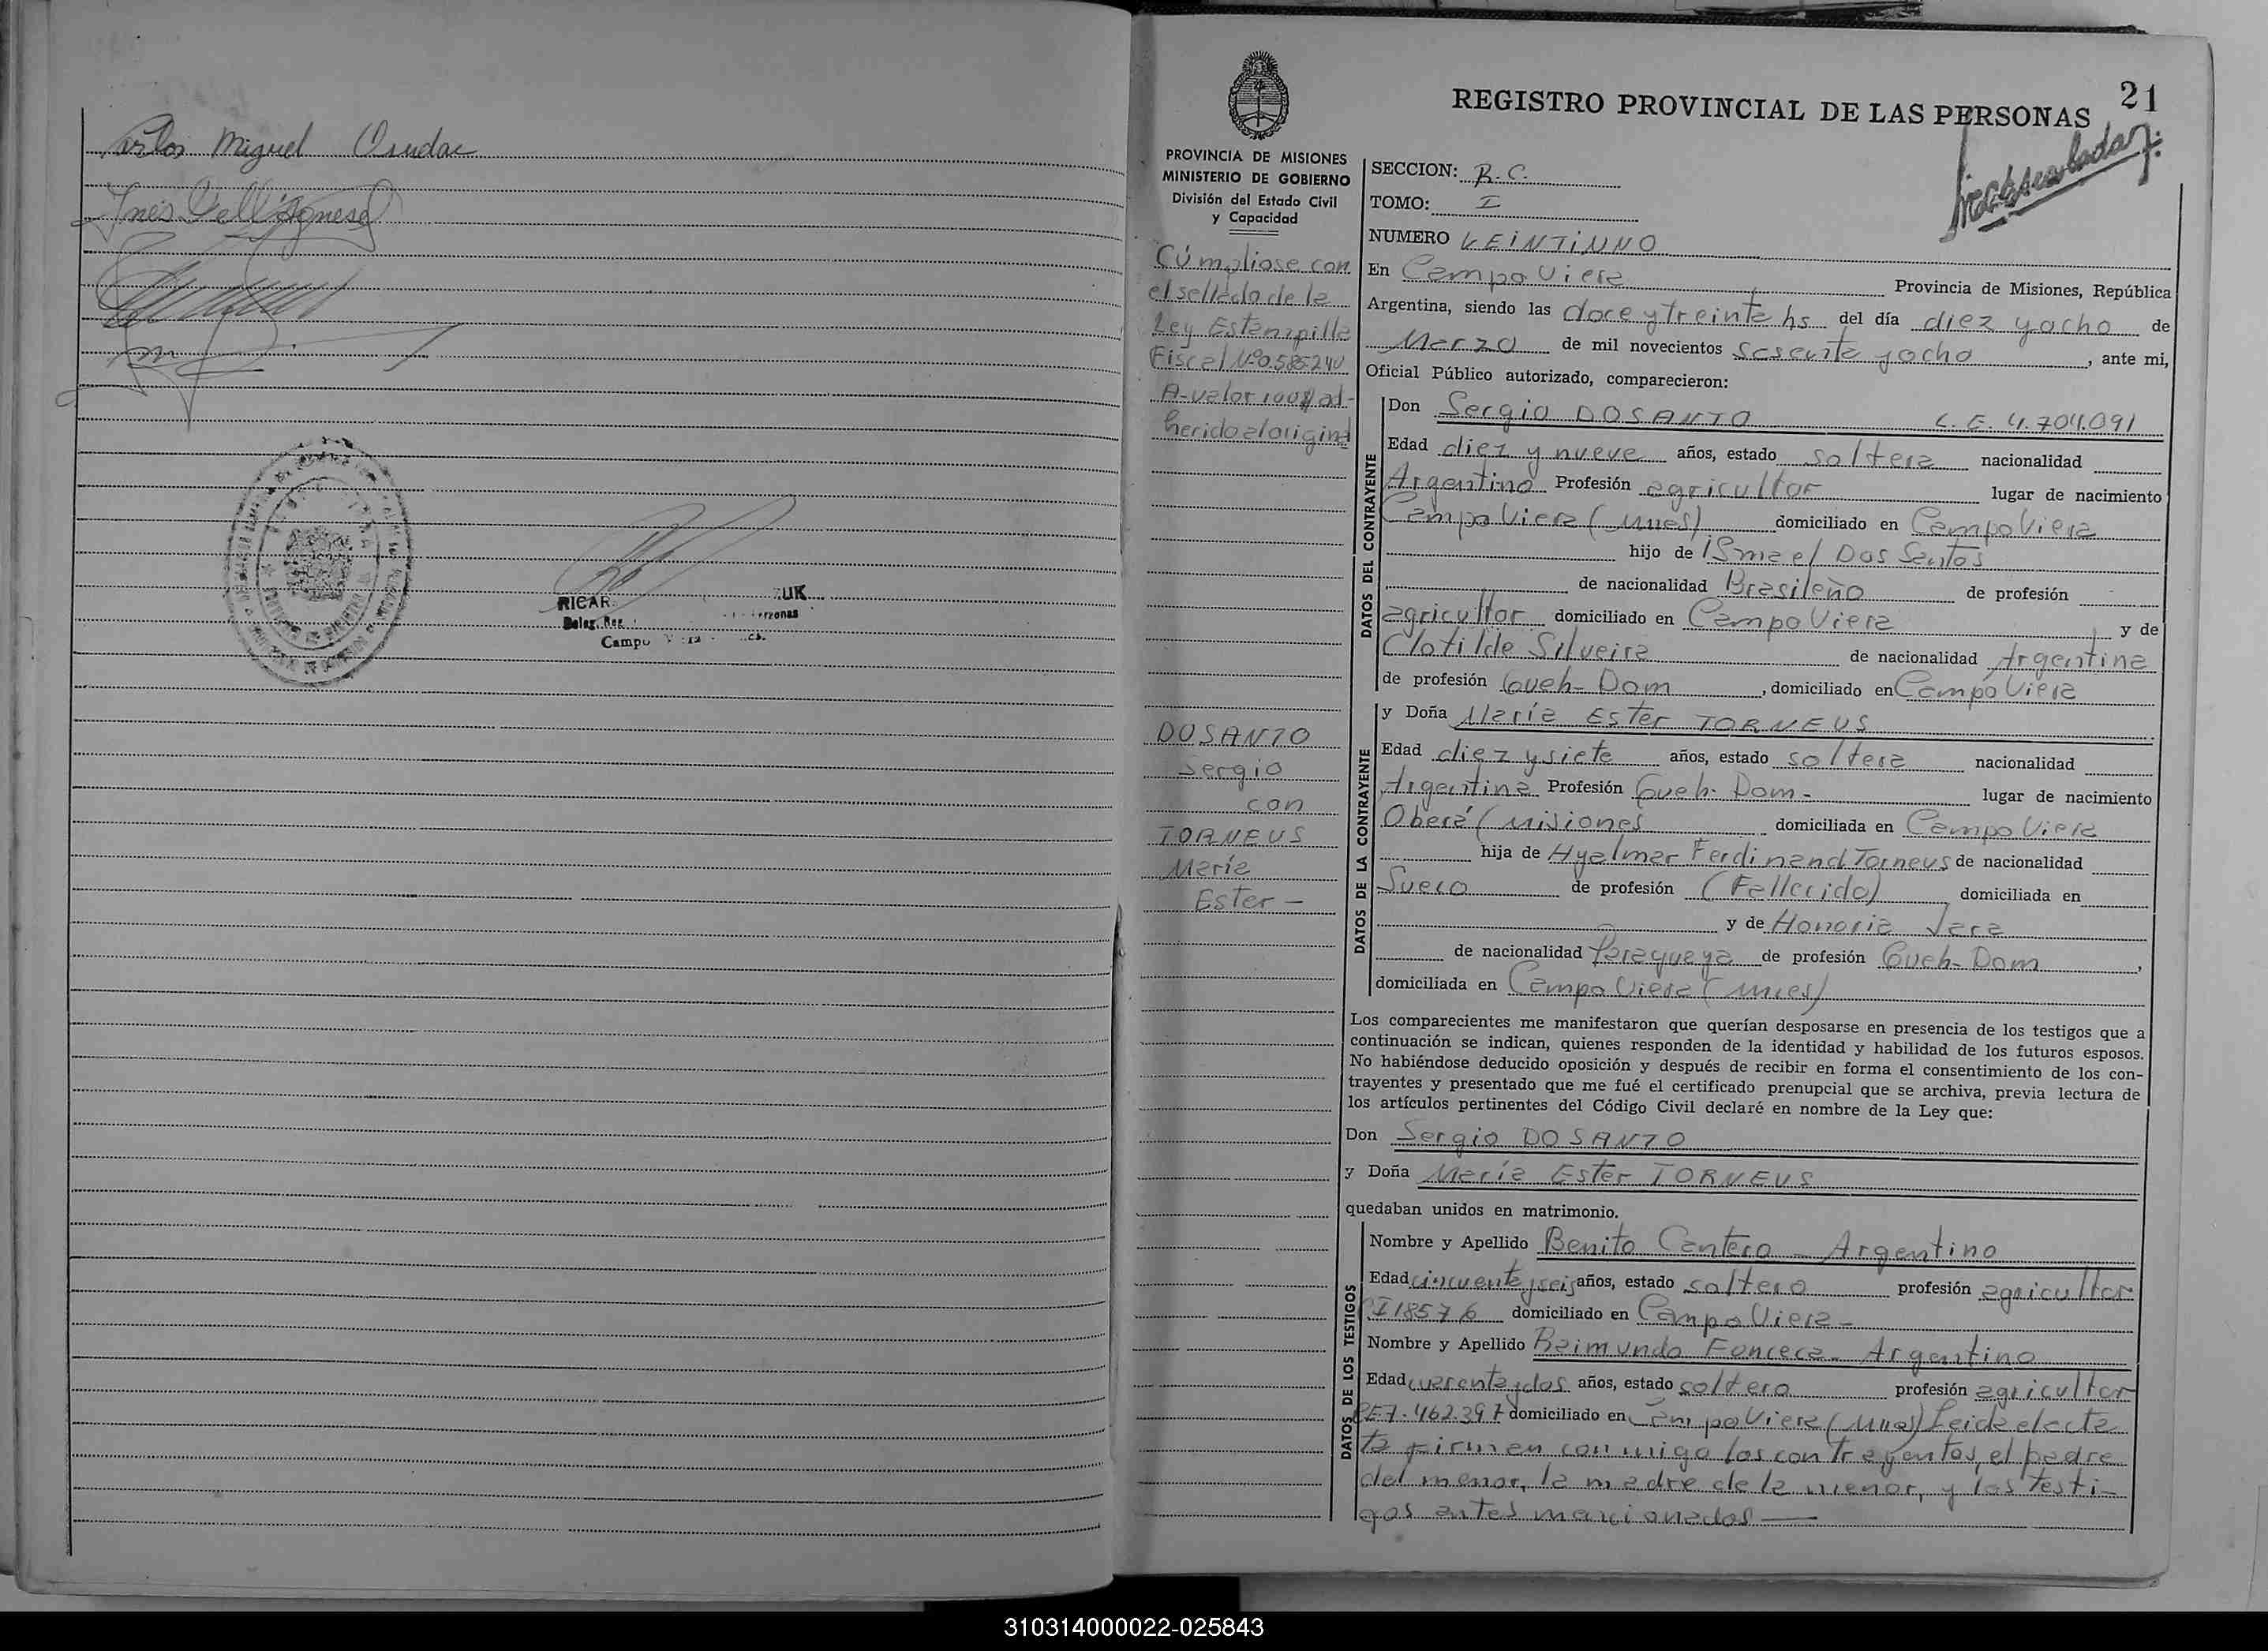 Carlos Miguel
Inés Dell'Agnese
RICAR UK
Deleg. Reg. ersonas
Campo
21
REGISTRO PROVINCIAL DE LAS PERSONAS
PROVINCIA DE MISIONES
MINISTERIO DE GOBIERNO
División del Estado Civil
y Capacidad
Cúmpliose con
el sellado de la
Ley Estampilla
Fiscal Nº0.585240
A-valor 100$ ad-
herido al original
DOSANTO
Sergio
con
TORNEUS
María
Ester -
SECCION: R.C.
TOMO: I
NUMERO VEINTIUNO
En Campo Viera Provincia de Misiones, República
Argentina, siendo las doce y treinta hs del día diez y ocho de
Marzo de mil novecientos sesenta y ocho, ante mi,
Oficial Público autorizado, comparecieron:
DATOS DEL CONTRAYENTE
Don Sergio DOSANTO L.E. 4.704.091
Edad diez y nueve años, estado soltera nacionalidad
Argentino Profesión agricultor lugar de nacimiento
Campo Viera (Mnes) domiciliado en Campo Viera
hijo de Ismael Dos Santos
de nacionalidad Brasileño de profesión
agricultor domiciliado en Campo Viera y de
Clotilde Silveira de nacionalidad Argentina
de profesión Queh-Dom, domiciliado en Campo Viera
DATOS DE LA CONTRAYENTE
y Doña María Ester TORNEUS
Edad diez y siete años, estado soltera nacionalidad
Argentina Profesión Queh-Dom- lugar de nacimiento
Oberá (Misiones domiciliada en Campo Viera
hija de Hyalmar Ferdinand Torneus de nacionalidad
Sueco de profesión (Fallecido) domiciliada en
y de Honoria Jara
de nacionalidad Paraguaya de profesión Queh-Dom,
domiciliada en Campo Viera (Mnes)
Los comparecientes me manifestaron que querían desposarse en presencia de los testigos que a
continuación se indican, quienes responden de la identidad y habilidad de los futuros esposos.
No habiéndose deducido oposición y después de recibir en forma el consentimiento de los con-
trayentes y presentado que me fué el certificado prenupcial que se archiva, previa lectura de
los artículos pertinentes del Código Civil declaré en nombre de la Ley que:
Don Sergio DOSANTO
y Doña María Ester TORNEUS
quedaban unidos en matrimonio.
DATOS DE LOS TESTIGOS
Nombre y Apellido Benito Cantero - Argentino
Edad cincuenta y seis años, estado soltero profesión agricultor
CI 18576 domiciliado en Campo Viera -
Nombre y Apellido Raimundo Fonceca - Argentino
Edad cuarenta y dos años, estado soltero profesión agricultor
LE 7.462.397 domiciliado en Campo Viera (Mnes) Leida el acta
ta firman conmigo los contrayentes, el padre
del menor, la madre de la menor, y los testi-
gos antes mencionados
310314000022-025843